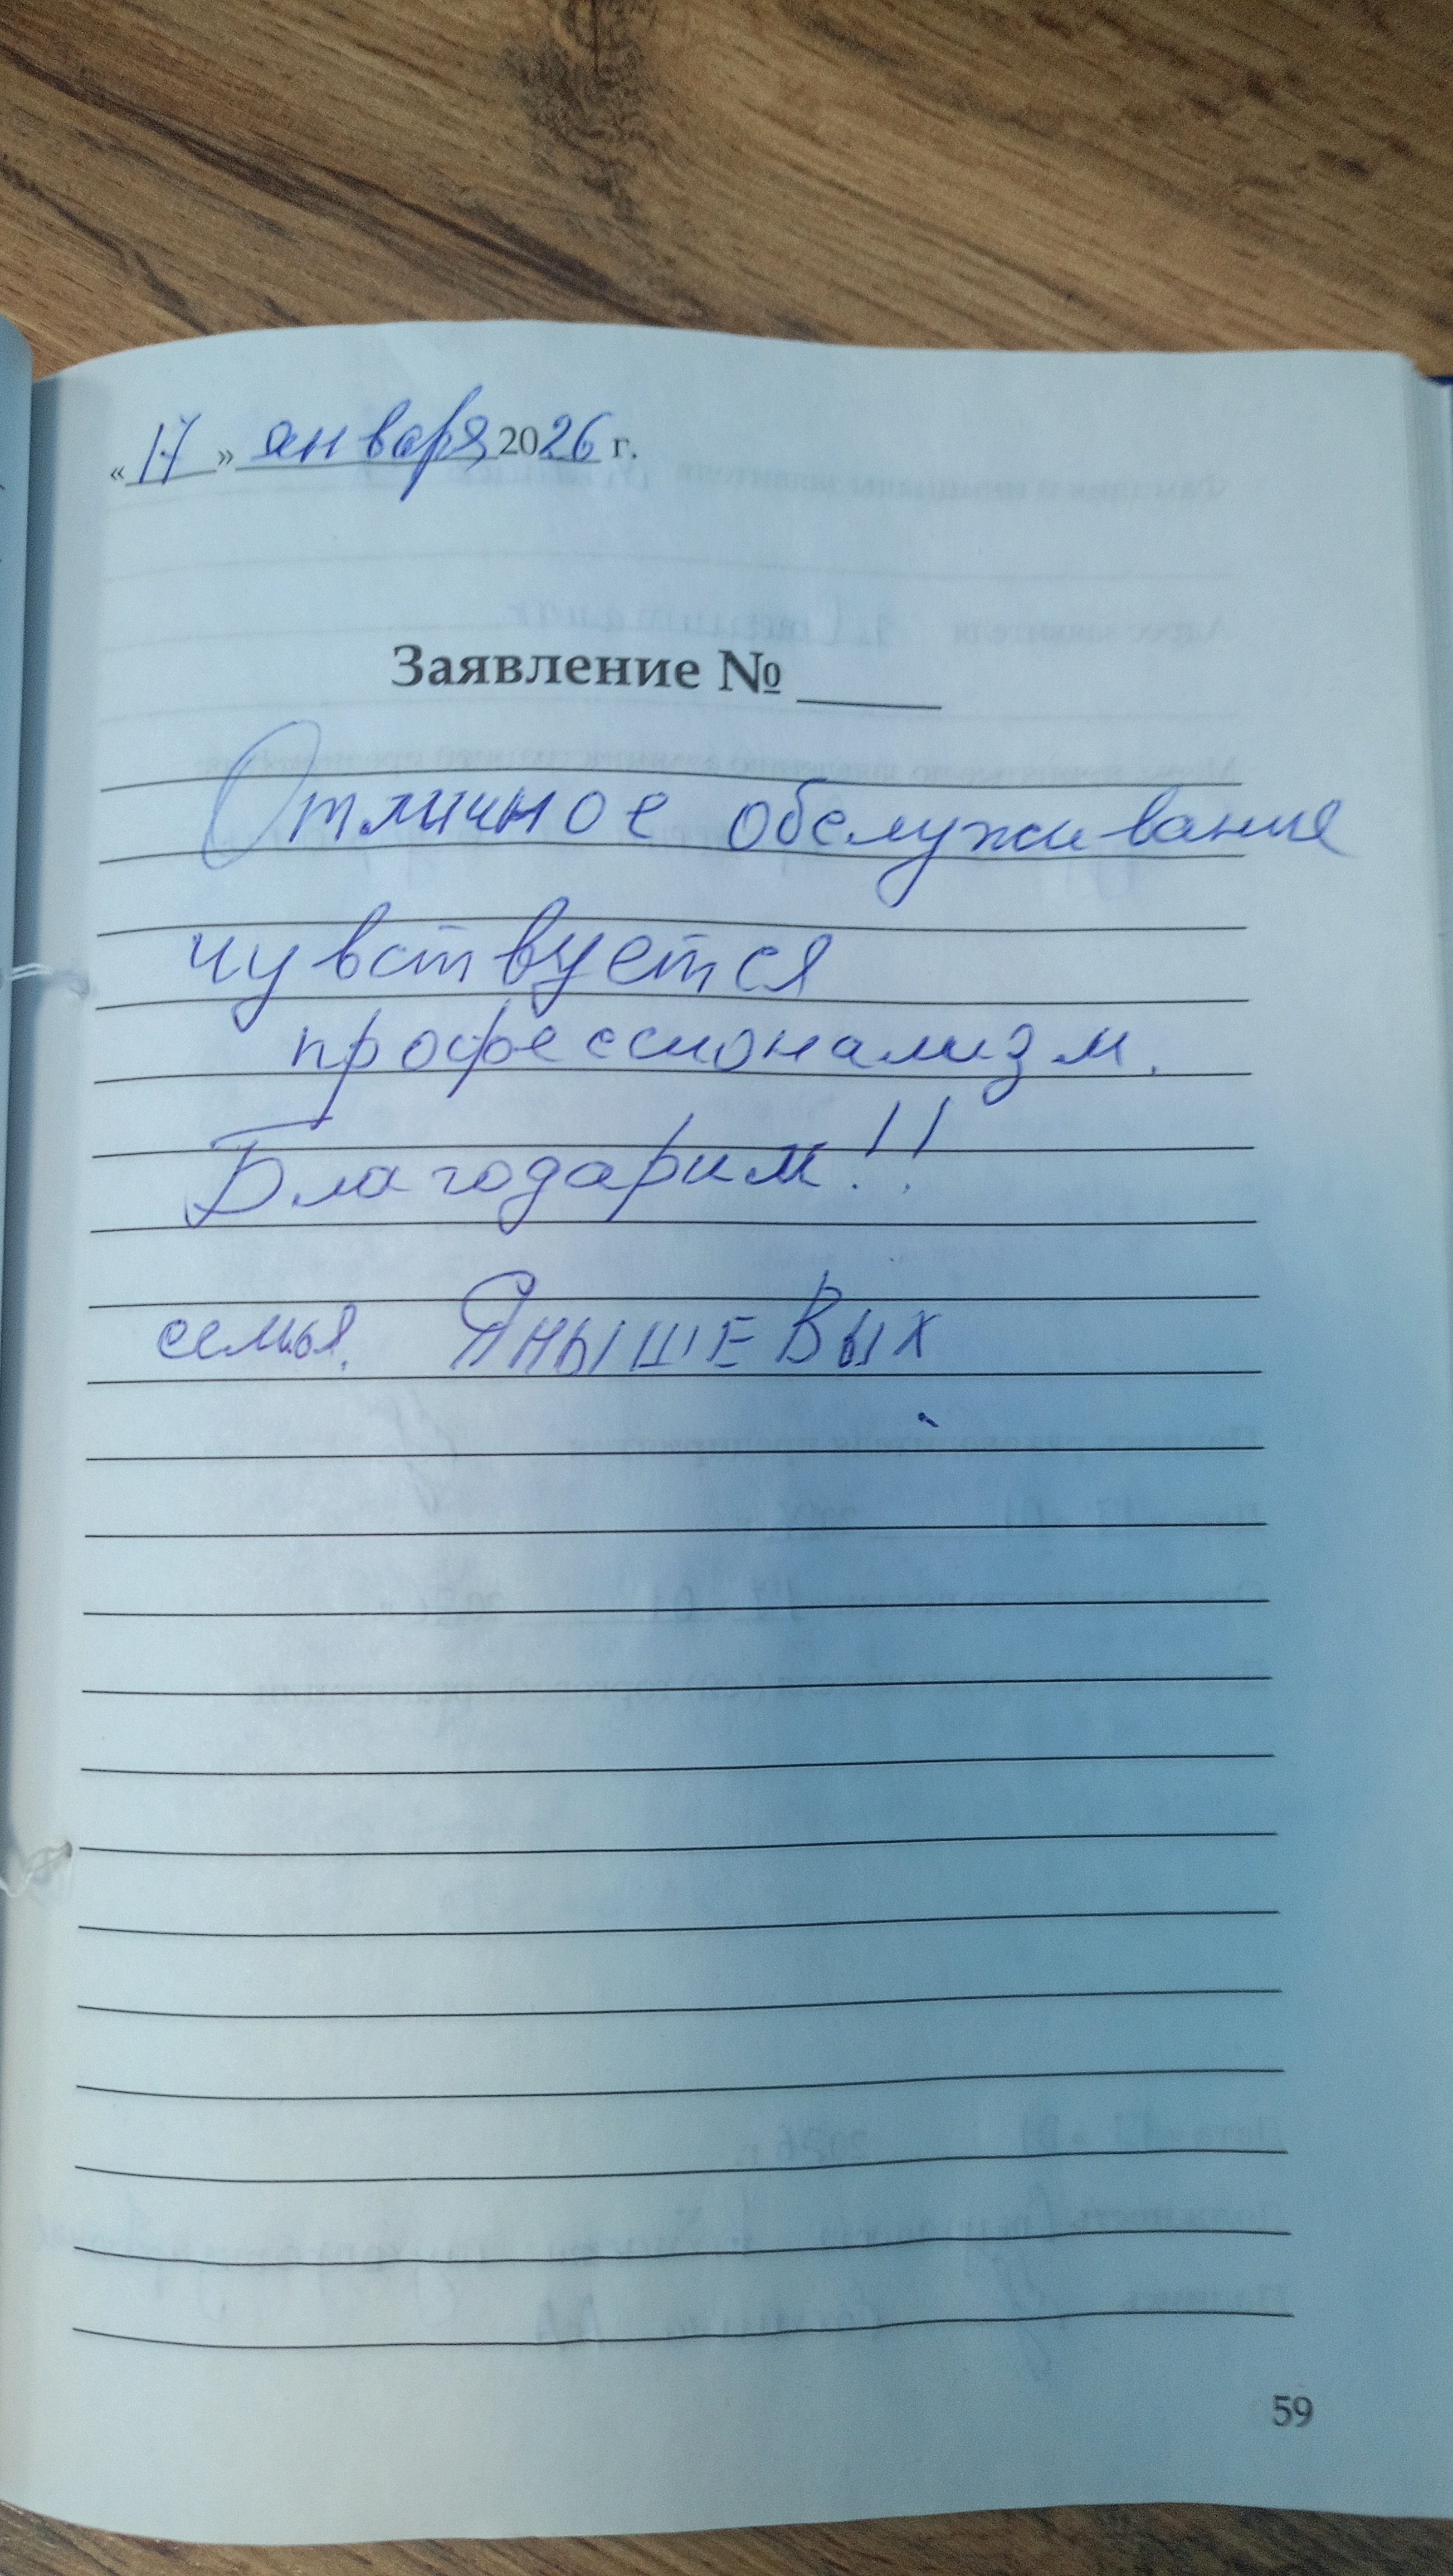 «17» января 2026 г.
Заявление № ____
Отличное обслуживание
чувствуется
профессионализм.
Благодарим!!
семья. ЯНЫШЕВЫХ
59